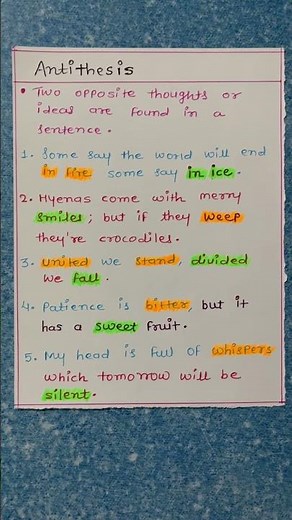 Antithesis
• Two opposite thoughts or
ideas are found in a
sentence.
1. Some say the world will end
in fire some say in ice.
2. Hyenas come with merry
smiles; but if they weep
they're crocodiles.
3. united we stand, divided
we fall.
4. Patience is bitter, but it
has a sweet fruit.
5. My head is full of whispers
which tomorrow will be
silent.